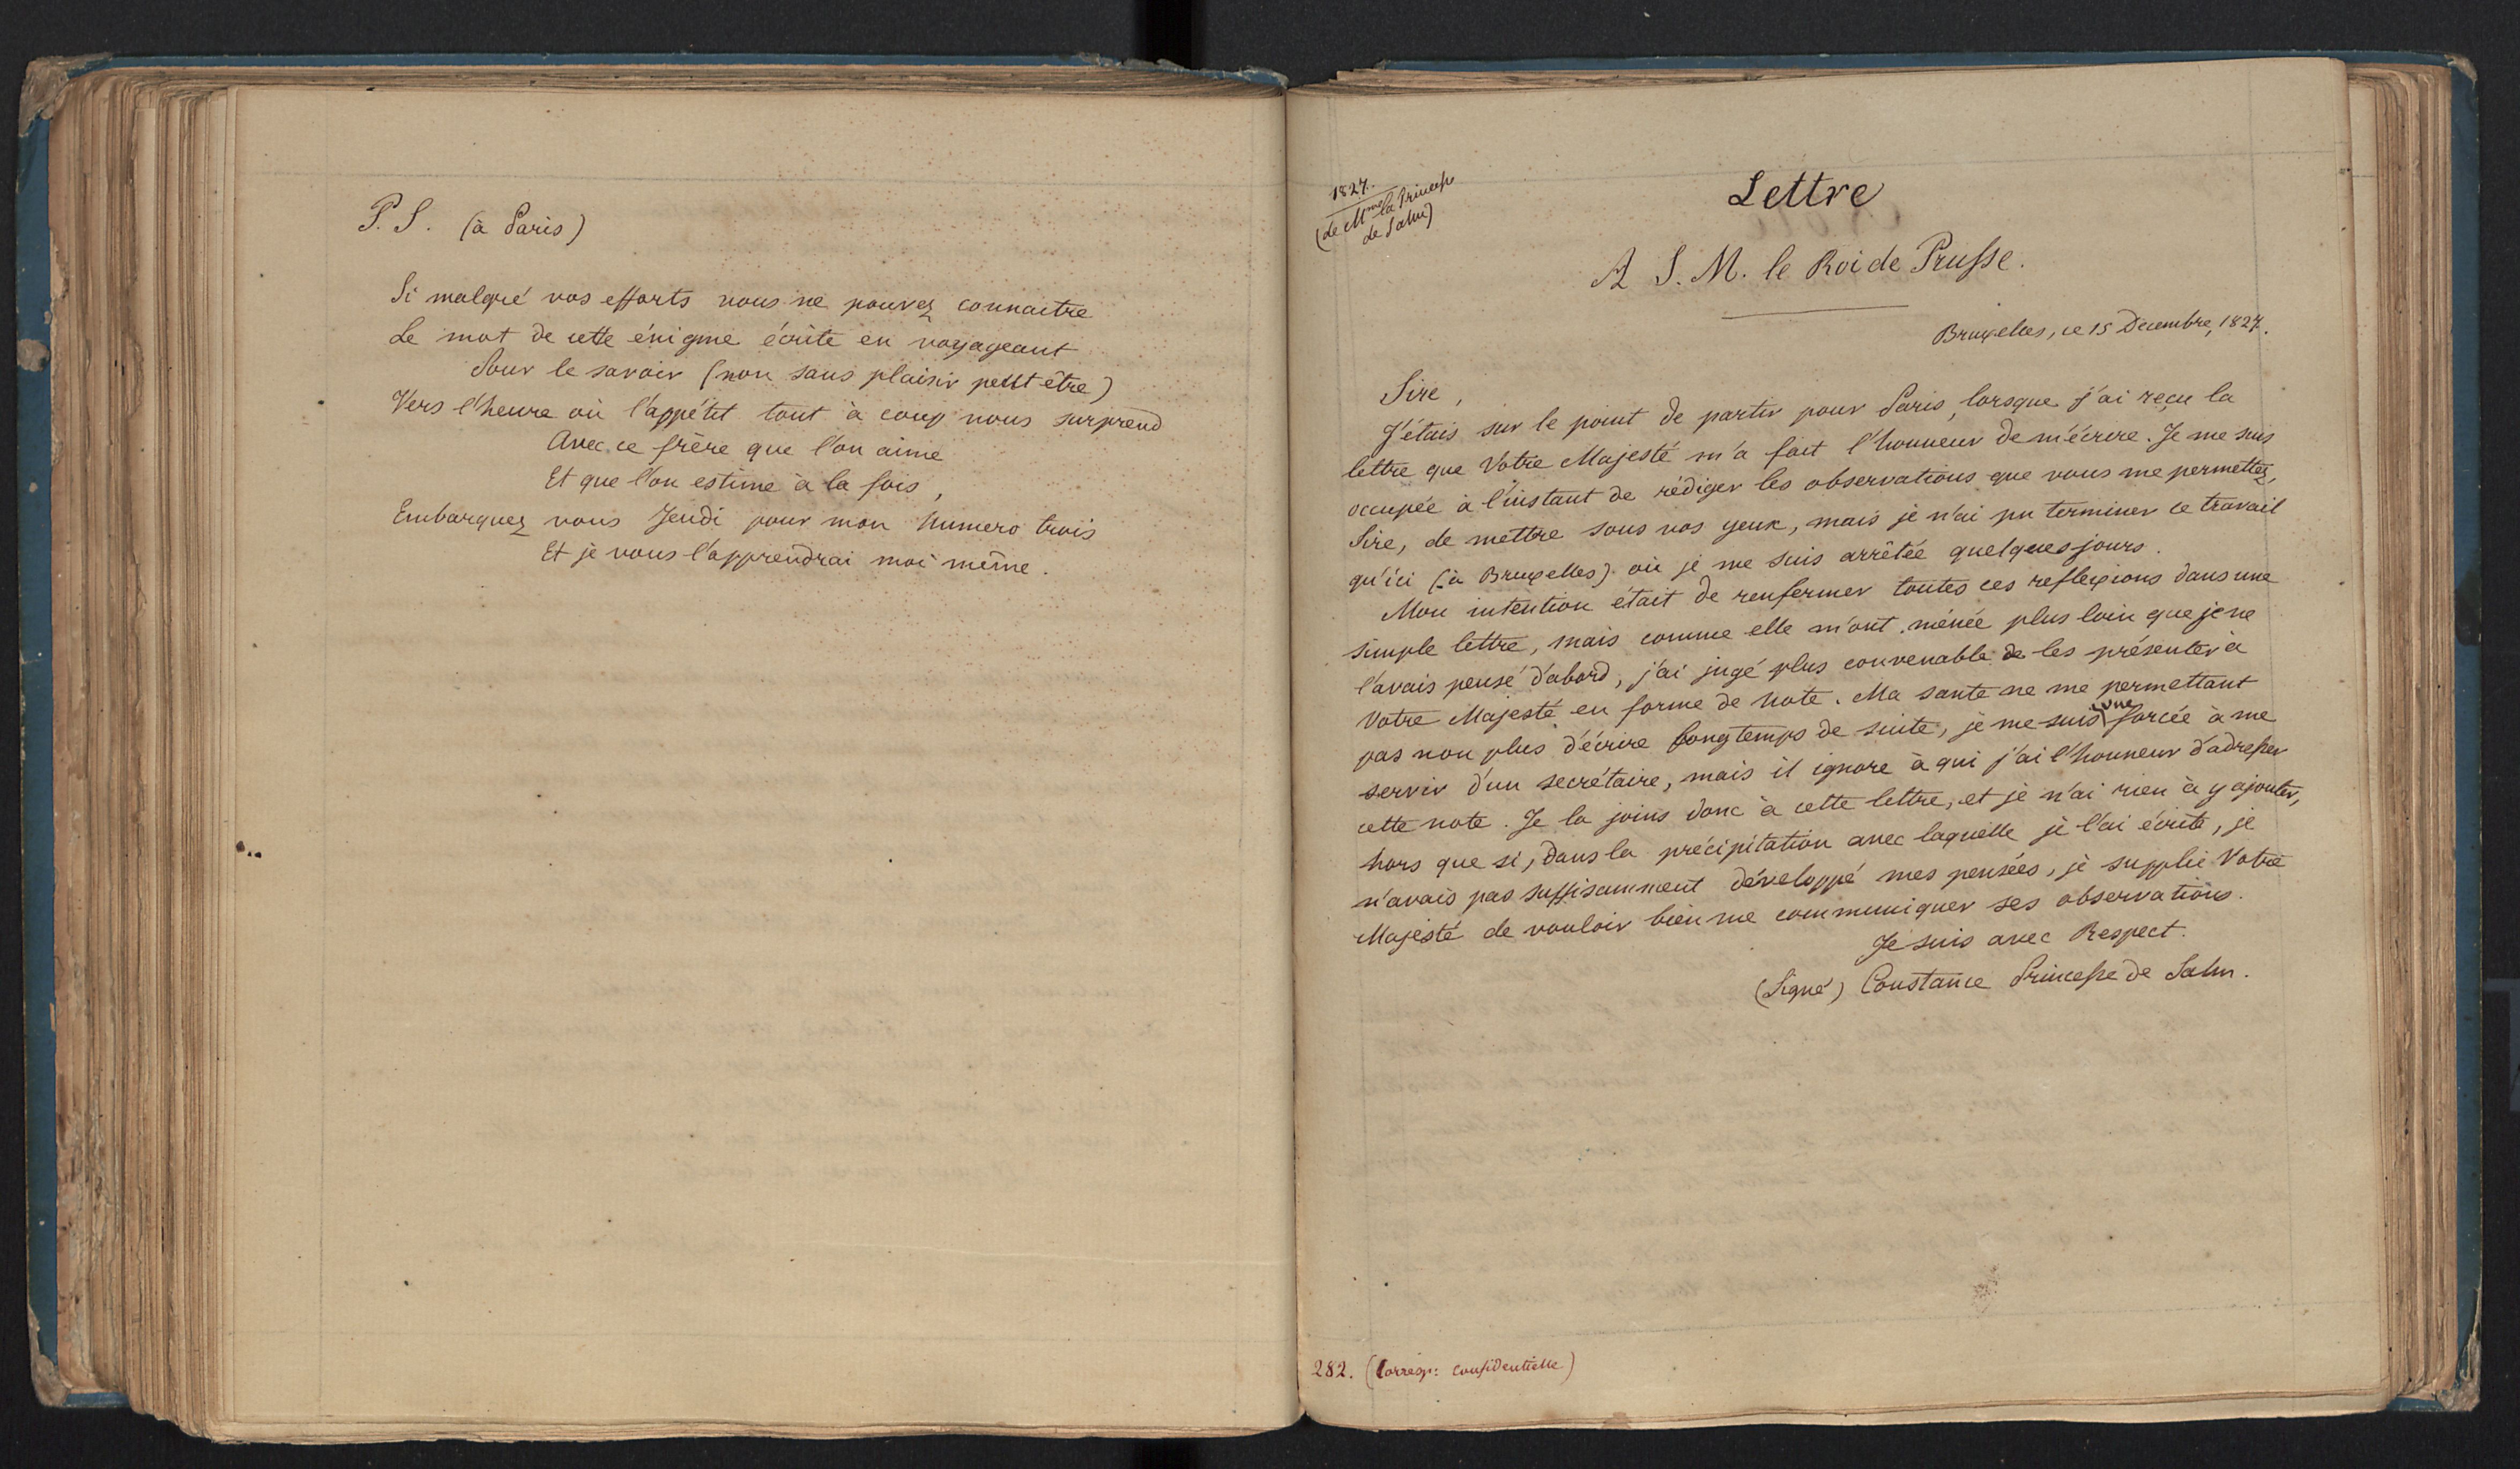 P. S. (à Paris)
Si malgré vos efforts vous ne pouvez connaitre
Le mot de cette énigme écrite en voyageant
Pour le savoir (non sans plaisir peut être)
Vers l'heure où l'appétit tout à coup nous surprend
Avec ce frère que l'on aime
Et que l'on estime à la fois,
Embarquez vous Jeudi pour mon Numero trois
Et je vous l'apprendrai moi même.
1827.
(de Mme la Princesse
de Salm)
Lettre
A S. M. le Roi de Prusse.
Bruxelles, ce 15 Decembre, 1827.
Sire,
J'étais sur le point de partir pour Paris, lorsque j'ai reçu la
lettre que Votre Majesté m'a fait l'honneur de m'écrire. Je me suis
occupée à l'instant de rédiger les observations que vous me permettez,
Sire, de mettre sous vos yeux, mais je n'ai pu terminer ce travail
qu'ici (à Bruxelles) où je me suis arrêtée quelques jours.
Mon intention était de renfermer toutes ces reflexions dans une
simple lettre, mais comme elle m'ont menée plus loin que je ne
l'avais pensé d'abord, j'ai jugé plus convenable de les présenter à
Votre Majesté en forme de Note. Ma santé ne me permettant
pas non plus d'écrire longtemps de suite, je me suis vue forcée à me
servir d'un secrétaire, mais il ignore à qui j'ai l'honneur d'adresser
cette note. Je la joins donc à cette lettre, et je n'ai rien à y ajouter,
hors que si, dans la précipitation avec laquelle je l'ai écrite, je
n'avais pas suffisamment développé mes pensées, je supplie Votre
Majesté de vouloir bien me communiquer ses observations.
Je suis avec Respect.
(Signé) Constance Princesse de Salm.
282. (Corresp: confidentielle)